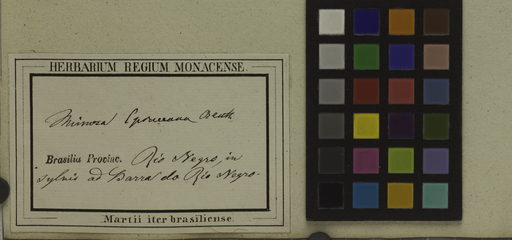 HERBARIUM REGIUM MONACENSE.
Mimosa Spruceana Benth
Brasilia Provinc. Rio Negro, in
sylvis ad Barra do Rio Negro.
Martii iter brasiliense.